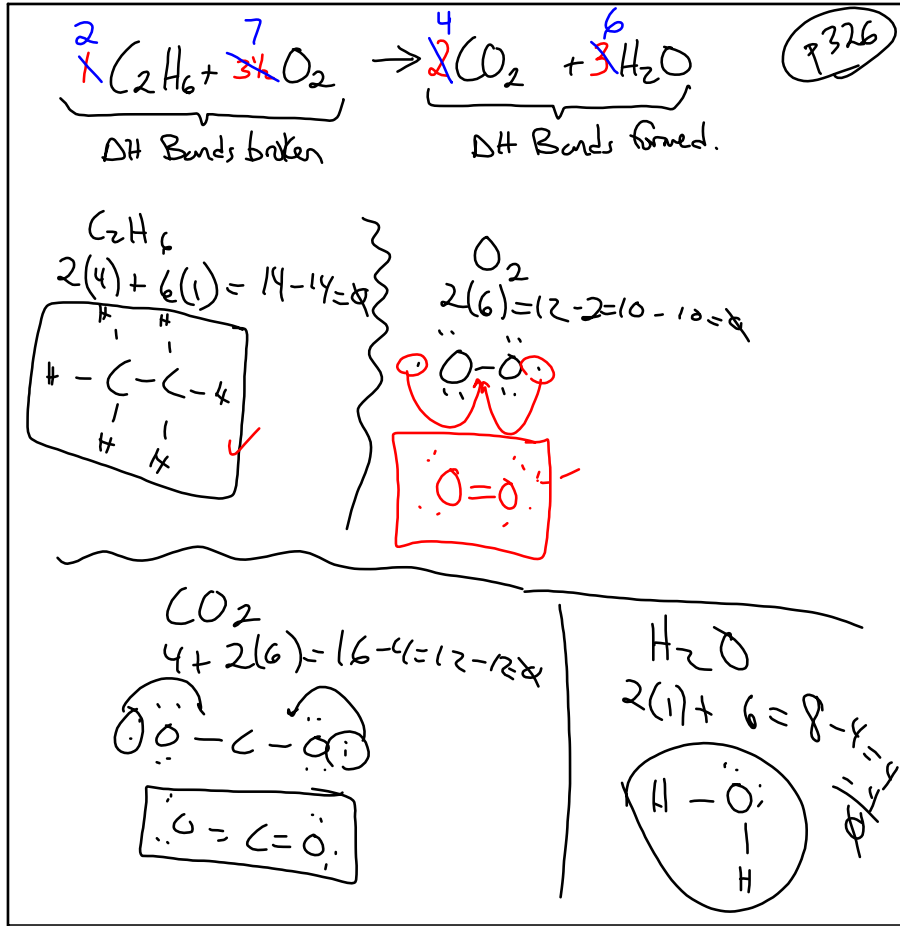 2 7 4 6
1 C2H6 + 3½ O2 → 2 CO2 + 3 H2O
p326
ΔH Bonds broken
ΔH Bonds formed.
C2H6
2(4) + 6(1) = 14-14=0
H H
H - C - C - H
H H
O2
2(6)=12-2=10-10=0
O-O
O=O
CO2
4+2(6)=16-4=12-12=0
O - C - O
O = C = O
H2O
2(1)+ 6 = 8-4=4
-4
0
H - O
H